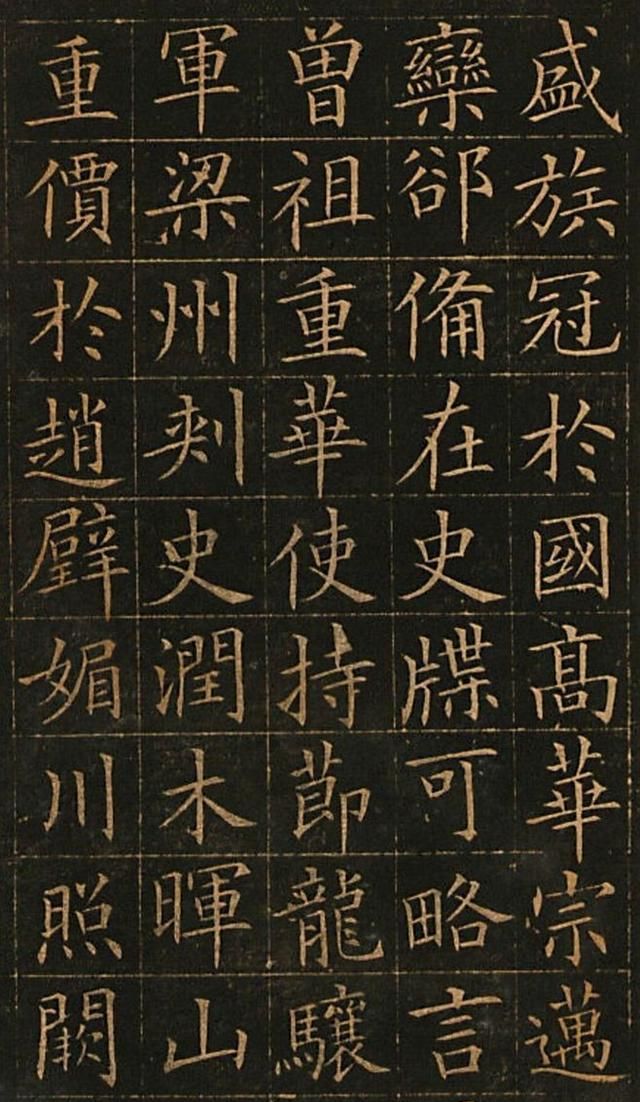 盛族冠於國高華宗邁
欒郤備在史牒可略言
曾祖重華使持節龍驤
軍梁州刺史潤木暉山
重價於趙璧媚川照闕